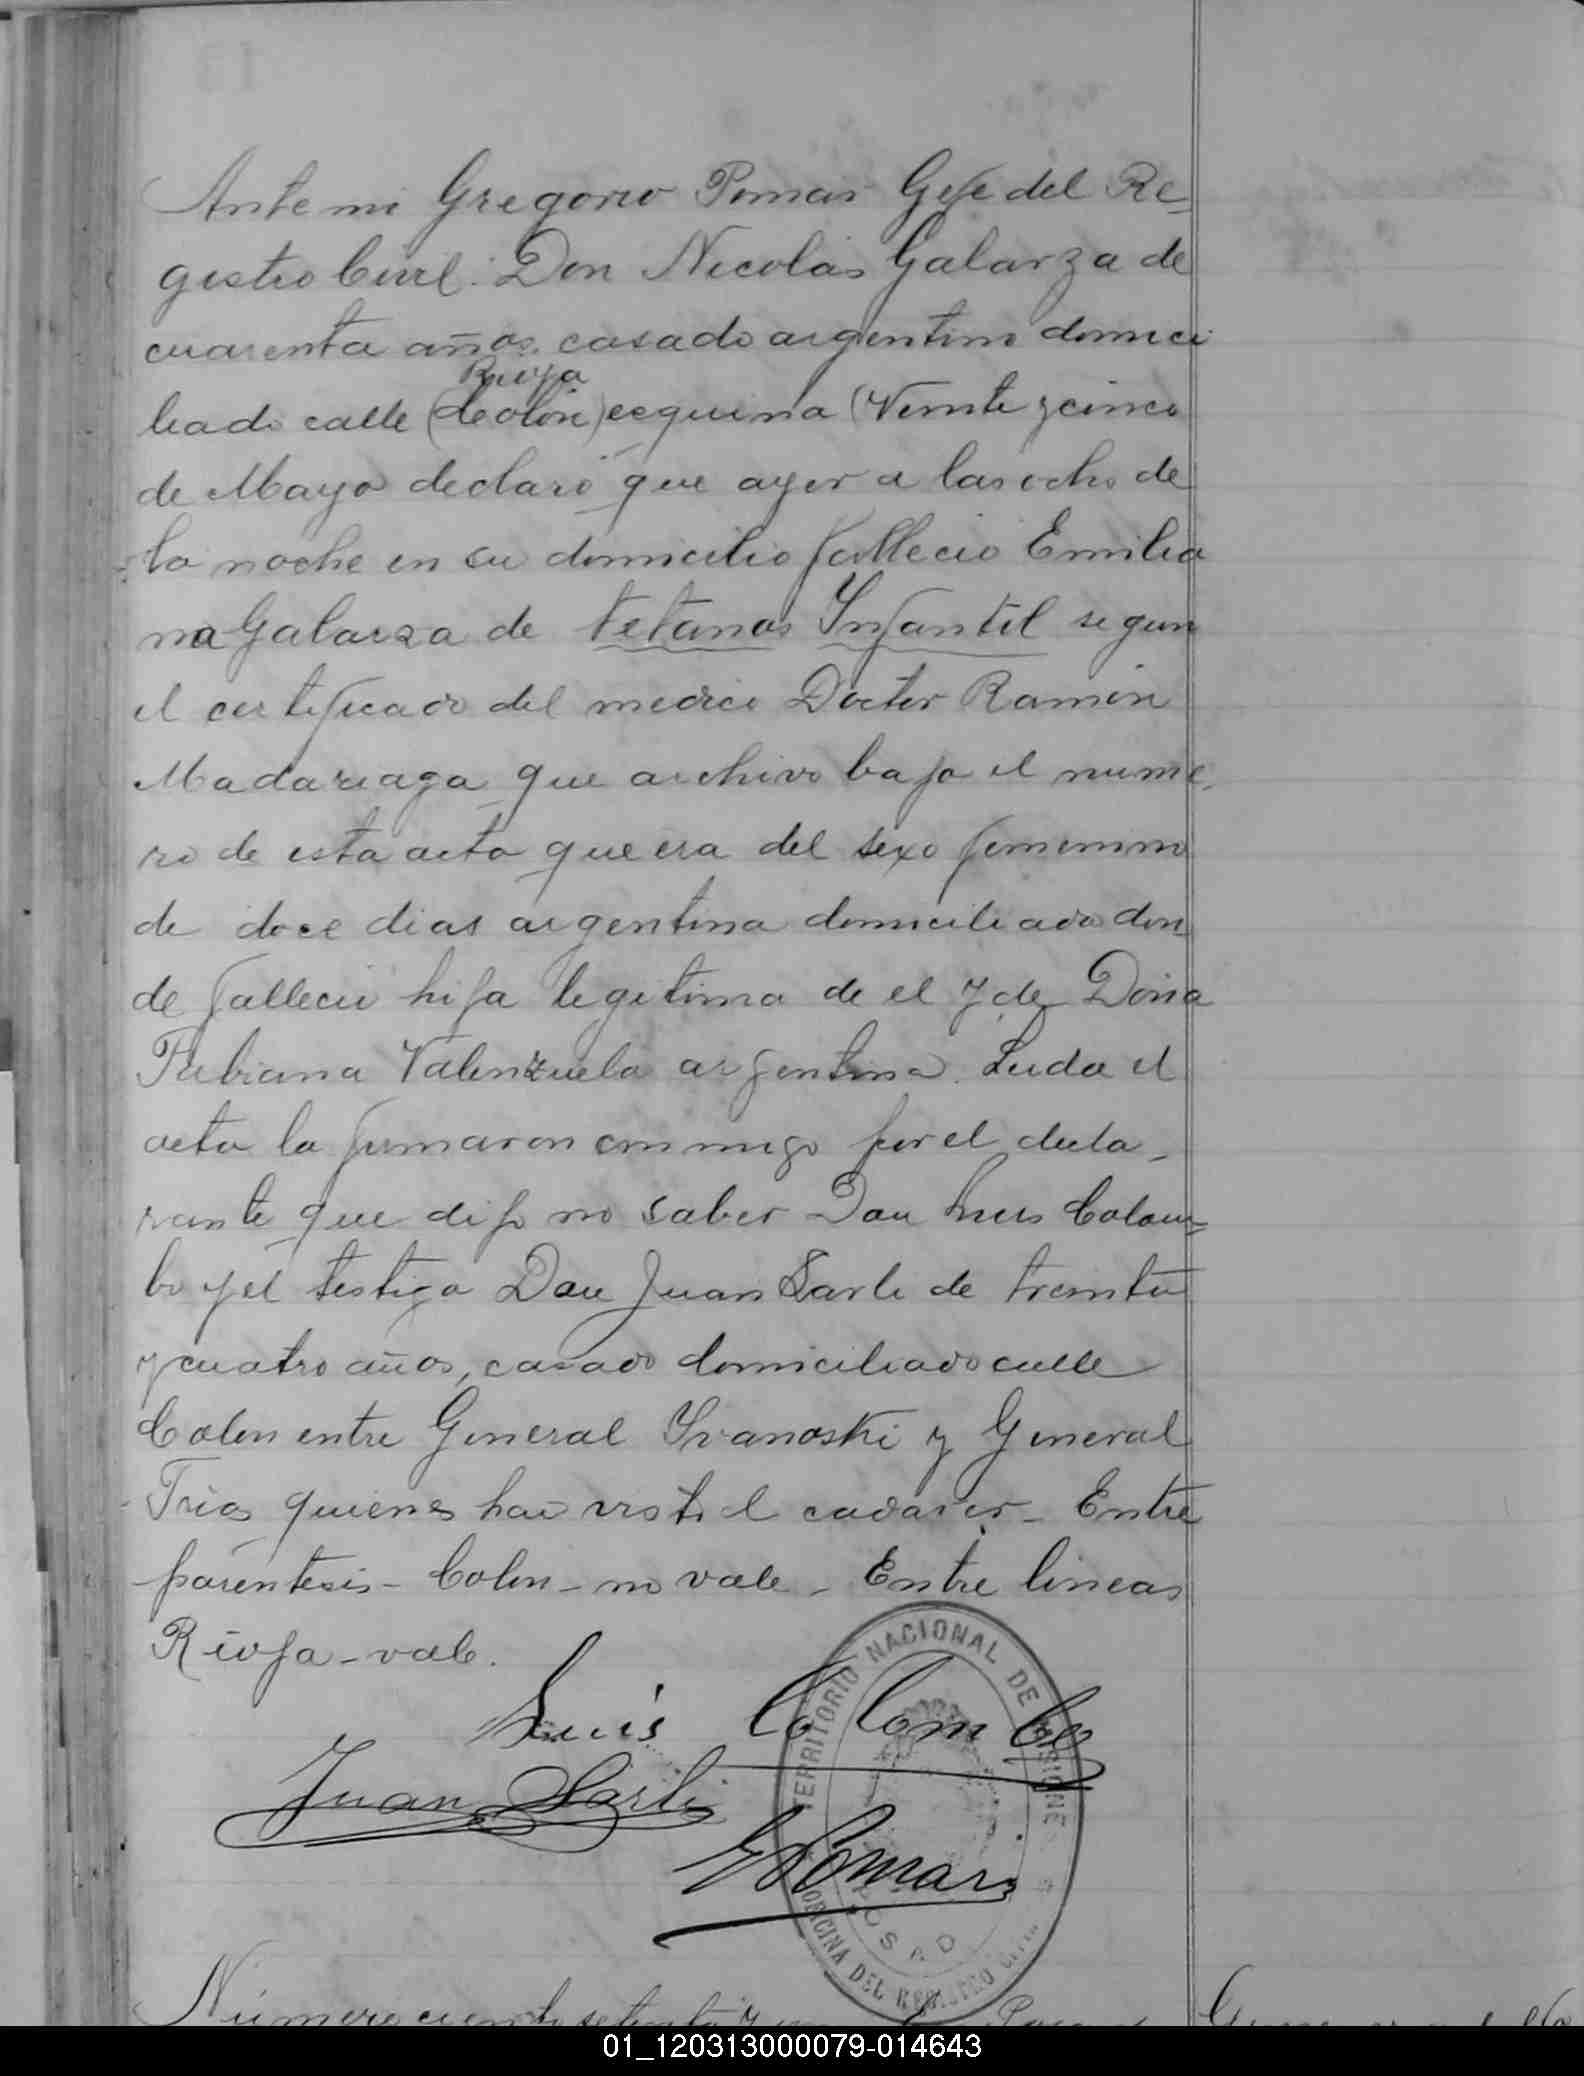 Ante mi Gregorio Pomar Gefe del Re-
gistro Civil: Don Nicolás Galarza de
cuarenta años, casado argentino domici
Rioja
liado calle (de Colon) esquina (Veinte y cinco
de Mayo declaró que ayer a las ocho de
la noche en su domicilio fallecio Emilia
na Galarza de tetanos Infantil segun
el certificado del medico Doctor Ramón
Madariaga que archivo bajo el nume-
ro de esta acta que era del sexo femenino
de doce dias argentina domiciliada don
de fallecio hija legitima de el y de Doña
Fabiana Valenzuela argentina. Leida el
acta la firmaron conmigo por el decla-
rante que dijo no saber Don Luis Colom-
bo y el testigo Don Juan Sarli de treinta
y cuatro años, casado domiciliado calle
Colon entre General Ivanoski y General
Frias quienes han visto el cadaver- Entre
parentesis- Colon- no vale- Entre lineas
Rioja- vale.
Luis Colombo
Juan Sarli
G Pomar
TERRITORIO NACIONAL DE MISIONES
POSAD
OFICINA DEL REGISTRO
Número ciento setenta y
01_120313000079-014643